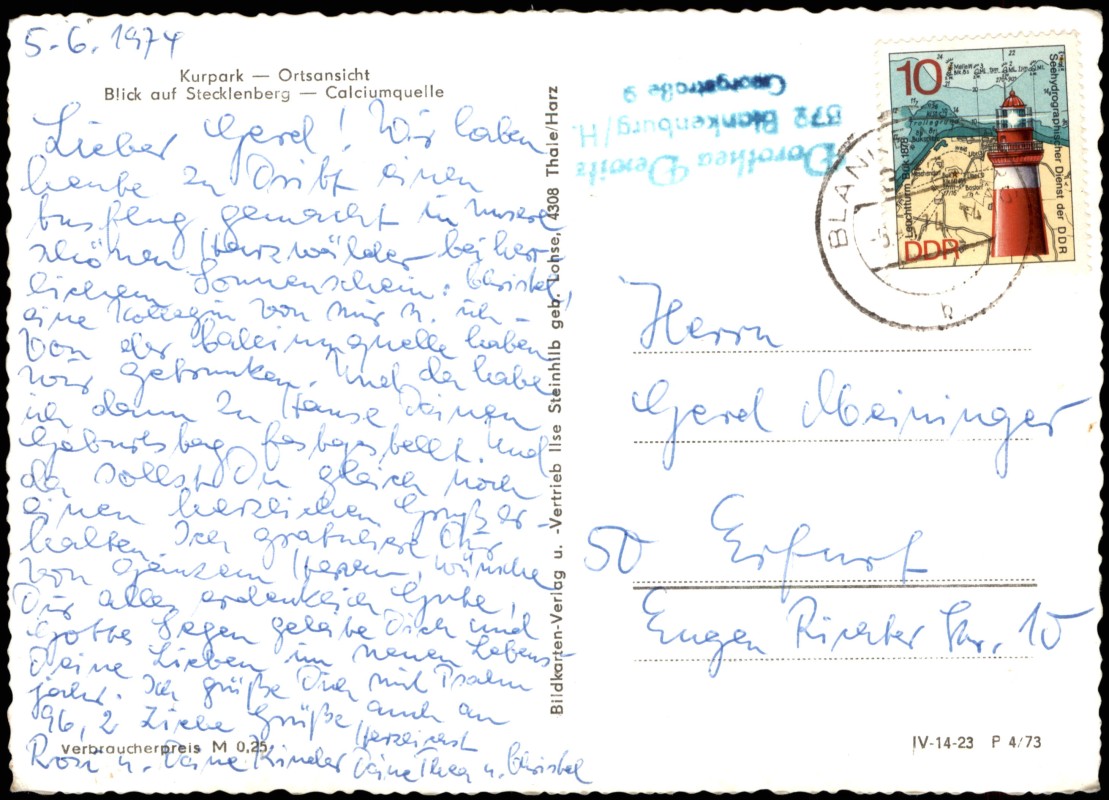 5.6.1974
Kurpark — Ortsansicht
Blick auf Stecklenberg — Calciumquelle
Lieber Gerd! Wir haben
heute zu Dritt einen
Ausflug gemacht in unsere
schönen Harzwälder bei herr-
lichem Sonnenschein: Christel,
eine Kollegin von mir u. ich –
Von der Calciumquelle haben
wir getrunken. Und da habe
ich dann zu Hause Deinen
Geburtstag festgestellt. Und
da sollst Du gleich noch
einen herzlichen Gruß er-
halten. Ich gratuliere Dir
von ganzem Herzen, wünsche
Dir alles erdenklich Gute,
Gottes Segen geleite Dich und
Deine Lieben im neuen Lebens-
jahr. Ich grüße Dich mit Psalm
96, 2 Liebe Grüße, auch an
Herzlichst
Rosi u. Deine Kinder Deine Thea u. Christel
Verbraucherpreis M 0,25
Bildkarten-Verlag u. -Vertrieb Ilse Steinhilb geb. Lohse, 4308 Thale/Harz
Dorothea Dewitz
372 Blankenburg/H.
Georgstraße 9
BLANK
10
Seehydrographischer Dienst der DDR
Leuchtturm Buk 1878
DDR
Herrn
Gerd Meininger
50 Erfurt
Eugen Richter Str. 10
IV-14-23 P 4/73